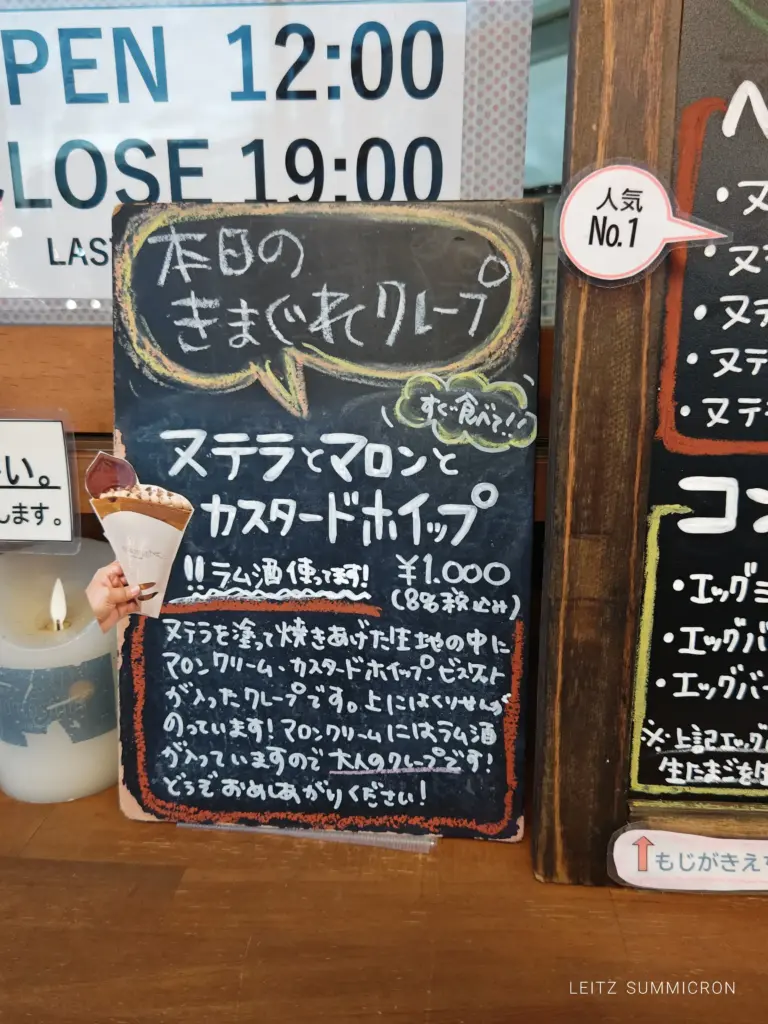 PEN 12:00
CLOSE 19:00
LAS
本日の
きまぐれクレープ
すぐ食べて!!
ヌテラとマロンと
カスタードホイップ
!!ラム酒使ってます!
¥1.000
(8%税込み)
ヌテラを塗って焼きあげた生地の中に
マロンクリーム・カスタードホイップ・ビスケット
が入ったクレープです。上にはくりせんが
のっています!マロンクリームにはラム酒
が入っていますので大人のクレープです!
どうぞおめしあがりください!
い。
します。
人気
No.1
・ヌ
・ヌテ
・ヌテ
・ヌテ
・ヌテ
コン
・エッグミ
・エッグバ
・エッグバー
※上記エッグ
生たまごを生
↑もじがきえ
LEITZ SUMMICRON